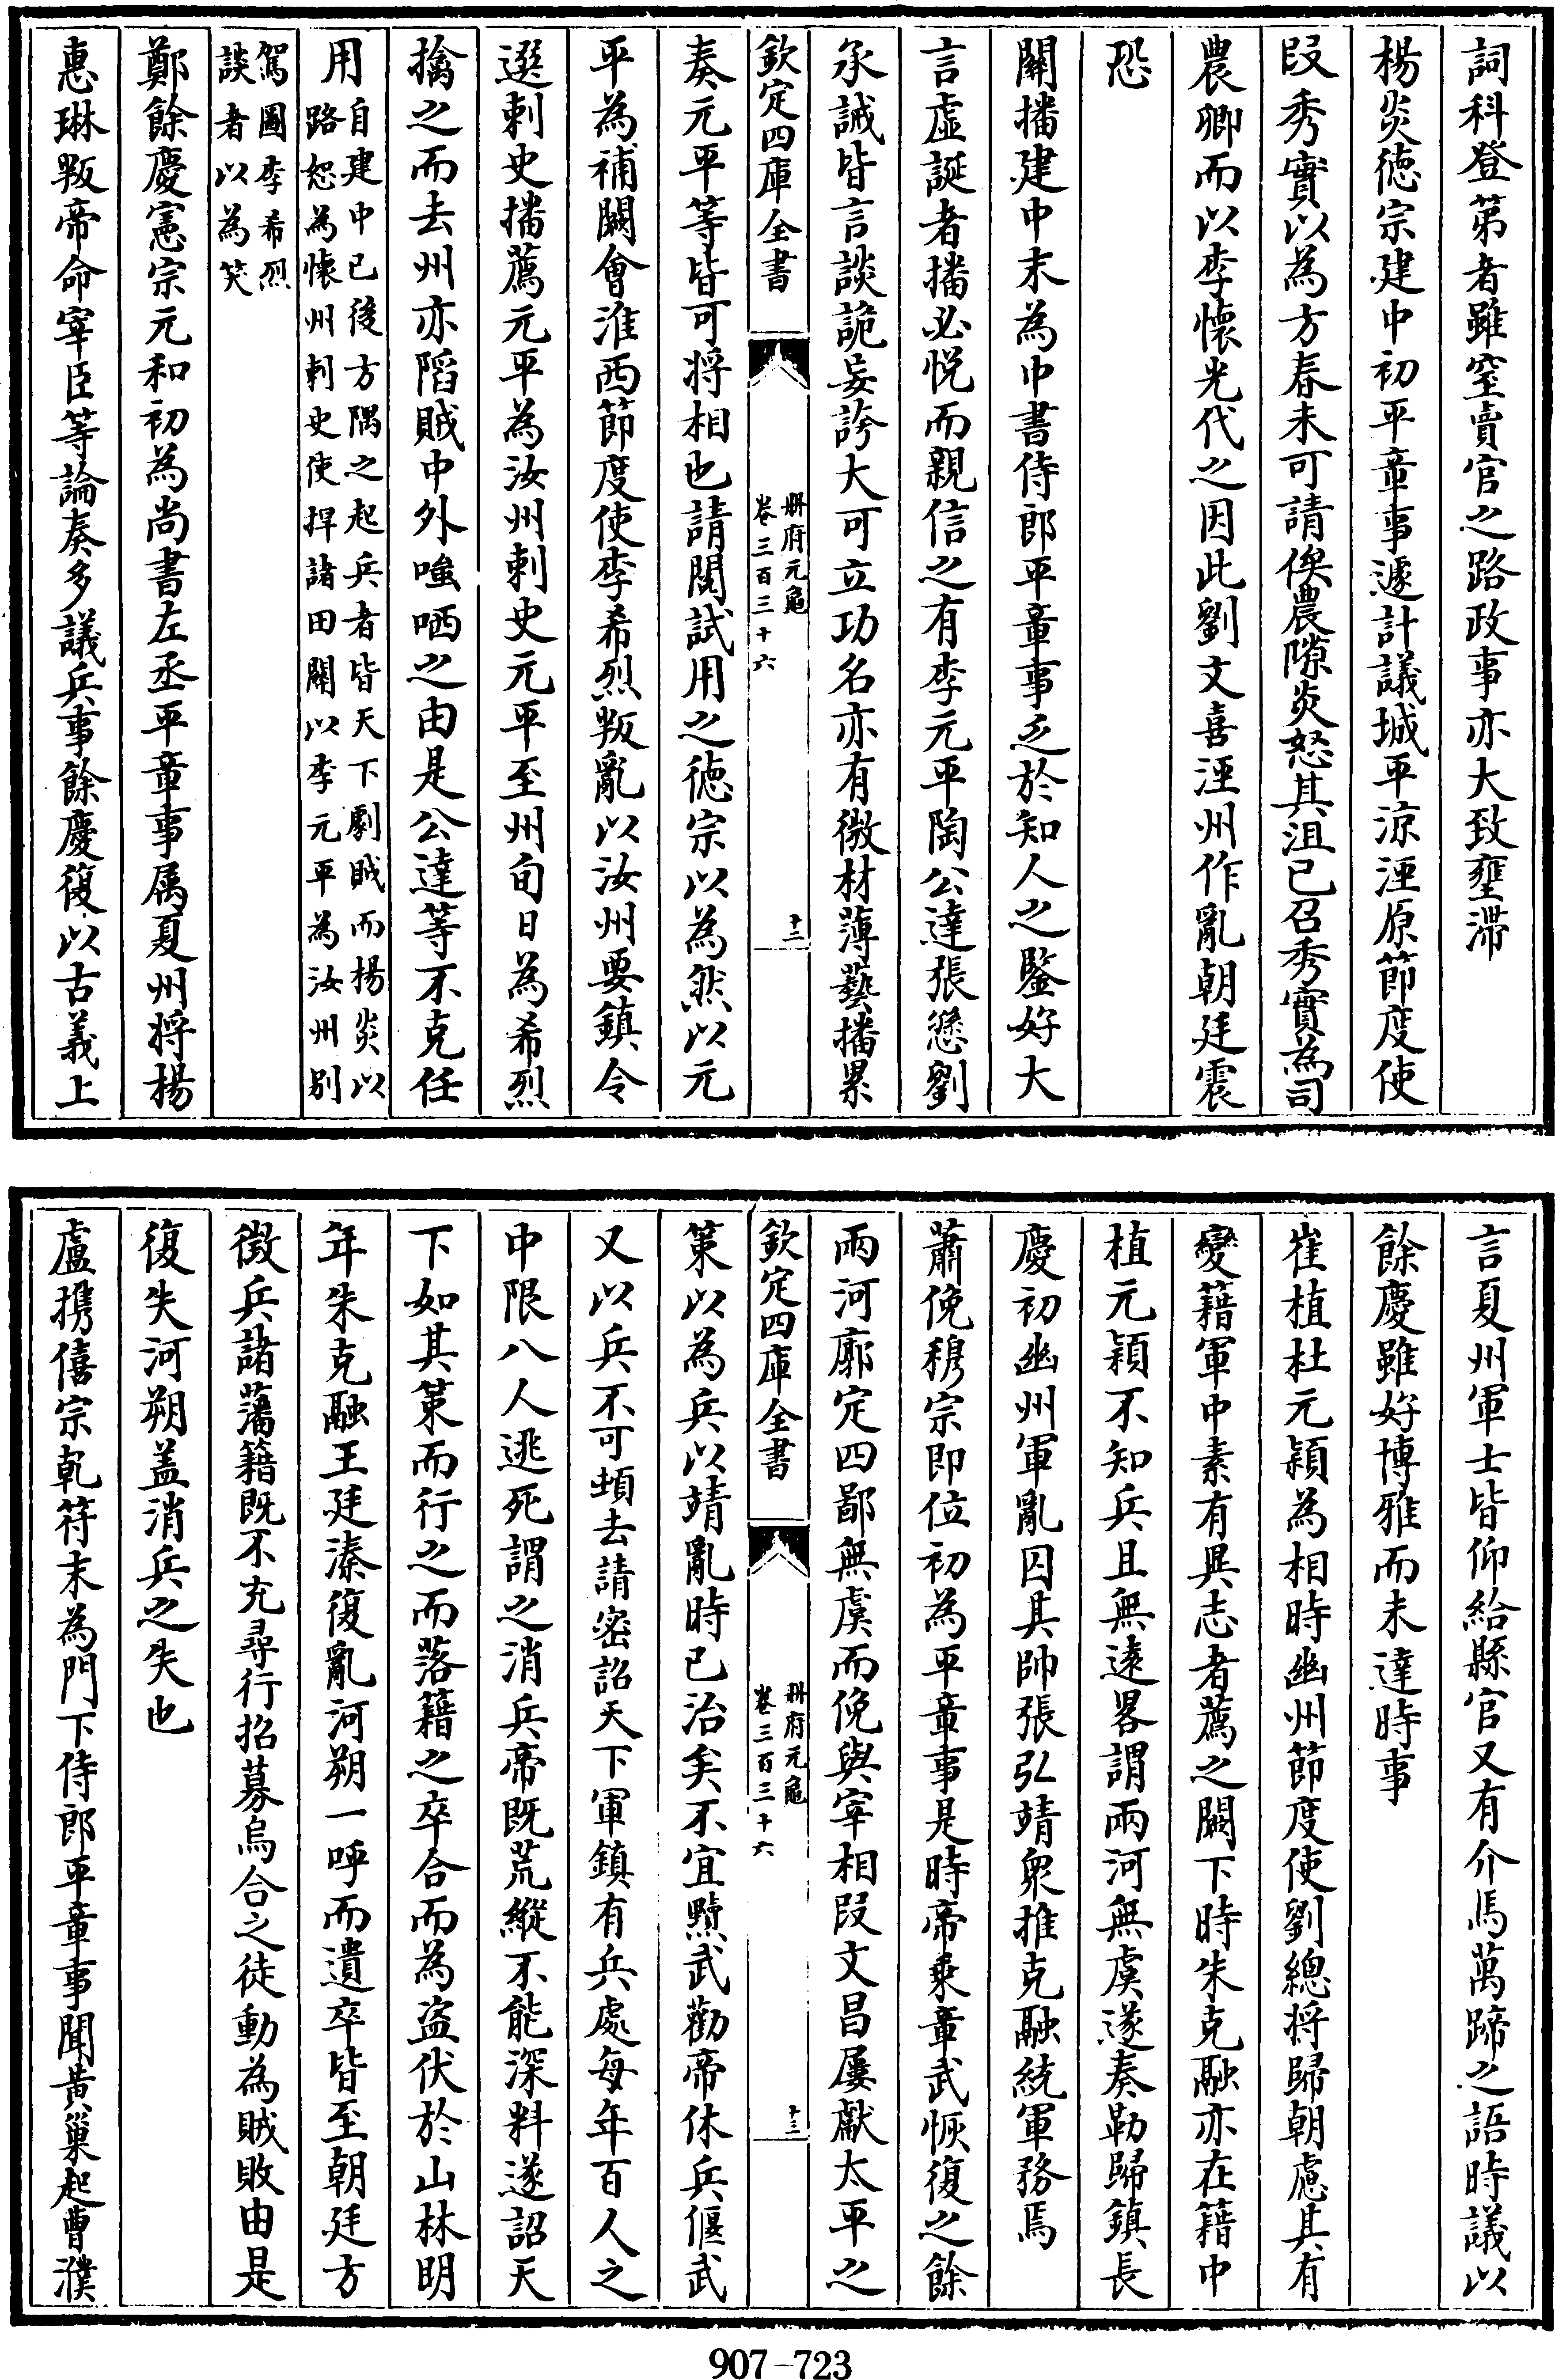 詞科登第者雖窒賣官之路政事亦大致壅滯
楊炎德宗建中初平章事遽計議城平涼涇原節度使
段秀實以為方春未可請俟農隙炎怒其沮己召秀實為司
農卿而以李懷光代之因此劉文喜涇州作亂朝廷震
恐
關播建中末為中書侍郎平章事乏於知人之鑒好大
言虛誕者播必悅而親信之有李元平陶公達張愻劉
承誡皆言談詭妄誇大可立功名亦有微材薄藝播累
欽定四庫全書
冊府元龜
卷三百三十六
十二
奏元平等皆可將相也請閱試用之德宗以為然以元
平為補闕會淮西節度使李希烈叛亂以汝州要鎮令
選刺史播薦元平為汝州刺史元平至州旬日為希烈
擒之而去州亦陷賊中外嗤哂之由是公達等不克任
用自建中已後方隅之起兵者皆天下劇賊而楊炎以
路恕為懷州刺史使捍諸田關以李元平為汝州別
駕圖李希烈
談者以為笑
鄭餘慶憲宗元和初為尚書左丞平章事屬夏州將楊
惠琳叛帝命宰臣等論奏多議兵事餘慶復以古義上
言夏州軍士皆仰給縣官又有介馬萬蹄之語時議以
餘慶雖好博雅而未達時事
崔植杜元穎為相時幽州節度使劉總將歸朝慮其有
變籍軍中素有異志者薦之闕下時朱克融亦在籍中
植元穎不知兵且無遠畧謂兩河無虞遂奏勒歸鎮長
慶初幽州軍亂囚其帥張弘靖衆推克融統軍務焉
蕭俛穆宗即位初為平章事是時帝乗章武恢復之餘
兩河廓定四鄙無虞而俛與宰相段文昌屢獻太平之
欽定四庫全書
冊府元龜
卷三百三十六
十三
策以為兵以靖亂時已治矣不宜黷武勸帝休兵偃武
又以兵不可頓去請密詔天下軍鎮有兵處每年百人之
中限八人逃死謂之消兵帝既荒縱不能深料遂詔天
下如其策而行之而落籍之卒合而為盜伏於山林明
年朱克融王廷湊復亂河朔一呼而遺卒皆至朝廷方
徵兵諸藩籍既不充尋行招募烏合之徒動為賊敗由是
復失河朔盖消兵之失也
盧攜僖宗乾符末為門下侍郎平章事聞黃巢起曹濮
907-723